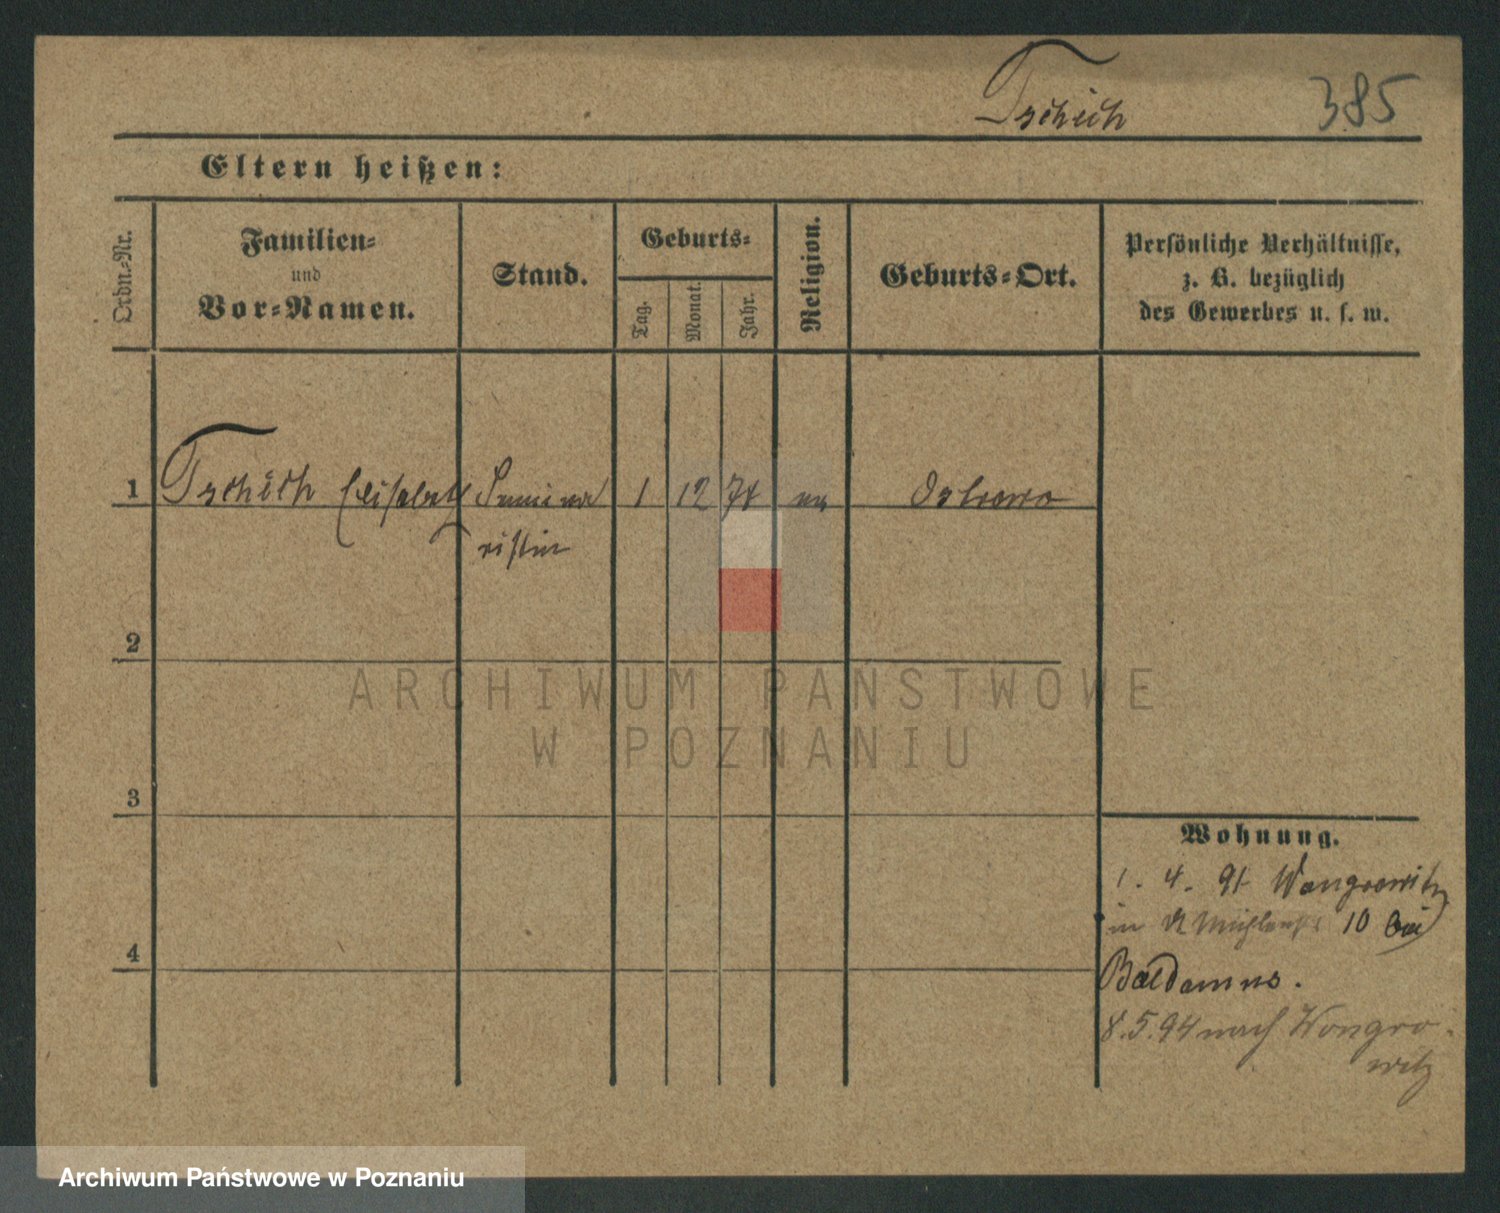 Tschich 385
Eltern heißen:
Ordn.-Nr.
Familien- und Vor-Namen.
Stand.
Geburts-
Tag.
Monat.
Jahr.
Religion.
Geburts-Ort.
Persönliche Verhältnisse,
z. B. bezüglich
des Gewerbes u. s. w.
1 Tschich Elisabeth Seminar 1 12 74 ev Ostrowo
ristin
2
ARCHIWUM PAŃSTWOWE
W POZNANIU
3
Wohnung.
1. 4. 91 Wongrowitz
in Mühlenstr 10 bei
4
Baldamus.
8.5.94 nach Wongro-
witz
Archiwum Państwowe w Poznaniu